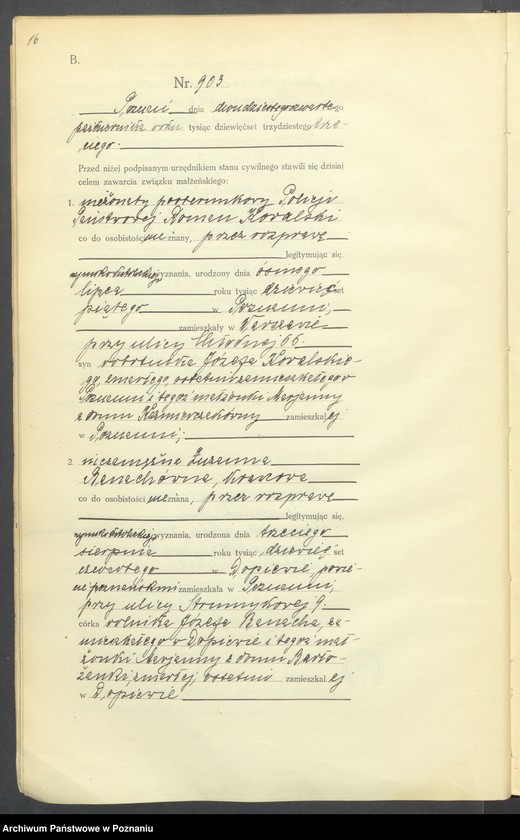 16
B.
Nr. 903
Poznań dnia dwudziestego czwartego
października roku tysiąc dziewięćset trzydziestego trze-
ciego.
Przed niżej podpisanym urzędnikiem stanu cywilnego stawili się dzisiaj
celem zawarcia związku małżeńskiego:
1. nieżonaty posterunkowy Policji
Państwowej Roman Kowalski
co do osobistości nieznany, przez rozprawę
legitymując się
rzymsko katolickiego wyznania, urodzony dnia ósmego
lipca roku tysiąc dziewięćset
piątego w Poznaniu,
zamieszkały w Warszawie
przy ulicy Chłodnej 66.
syn robotnika Józefa Kowalskie-
go, zmarłego, ostatnio zamieszkałego w
Poznaniu i tegoż małżonki Marjanny
z domu Kaźmierczakówny zamieszkałej
w Poznaniu;
2. niezamężna Zuzanna
Banachówna, krawcowa
co do osobistości nieznana, przez rozprawę
legitymując się,
rzymsko katolickiego wyznania, urodzona dnia trzeciego
sierpnia roku tysiąc dziewięćset
czwartego w Dopiewie powie-
cie poznańskim zamieszkała w Poznaniu,
przy ulicy Strumykowej 9.
córka rolnika Józefa Banacha, za-
mieszkałego w Dopiewie i tegoż mał-
żonki Marjanny z domu
zmarłej, ostatnio zamieszkałej
w Dopiewie
Archiwum Państwowe w Poznaniu